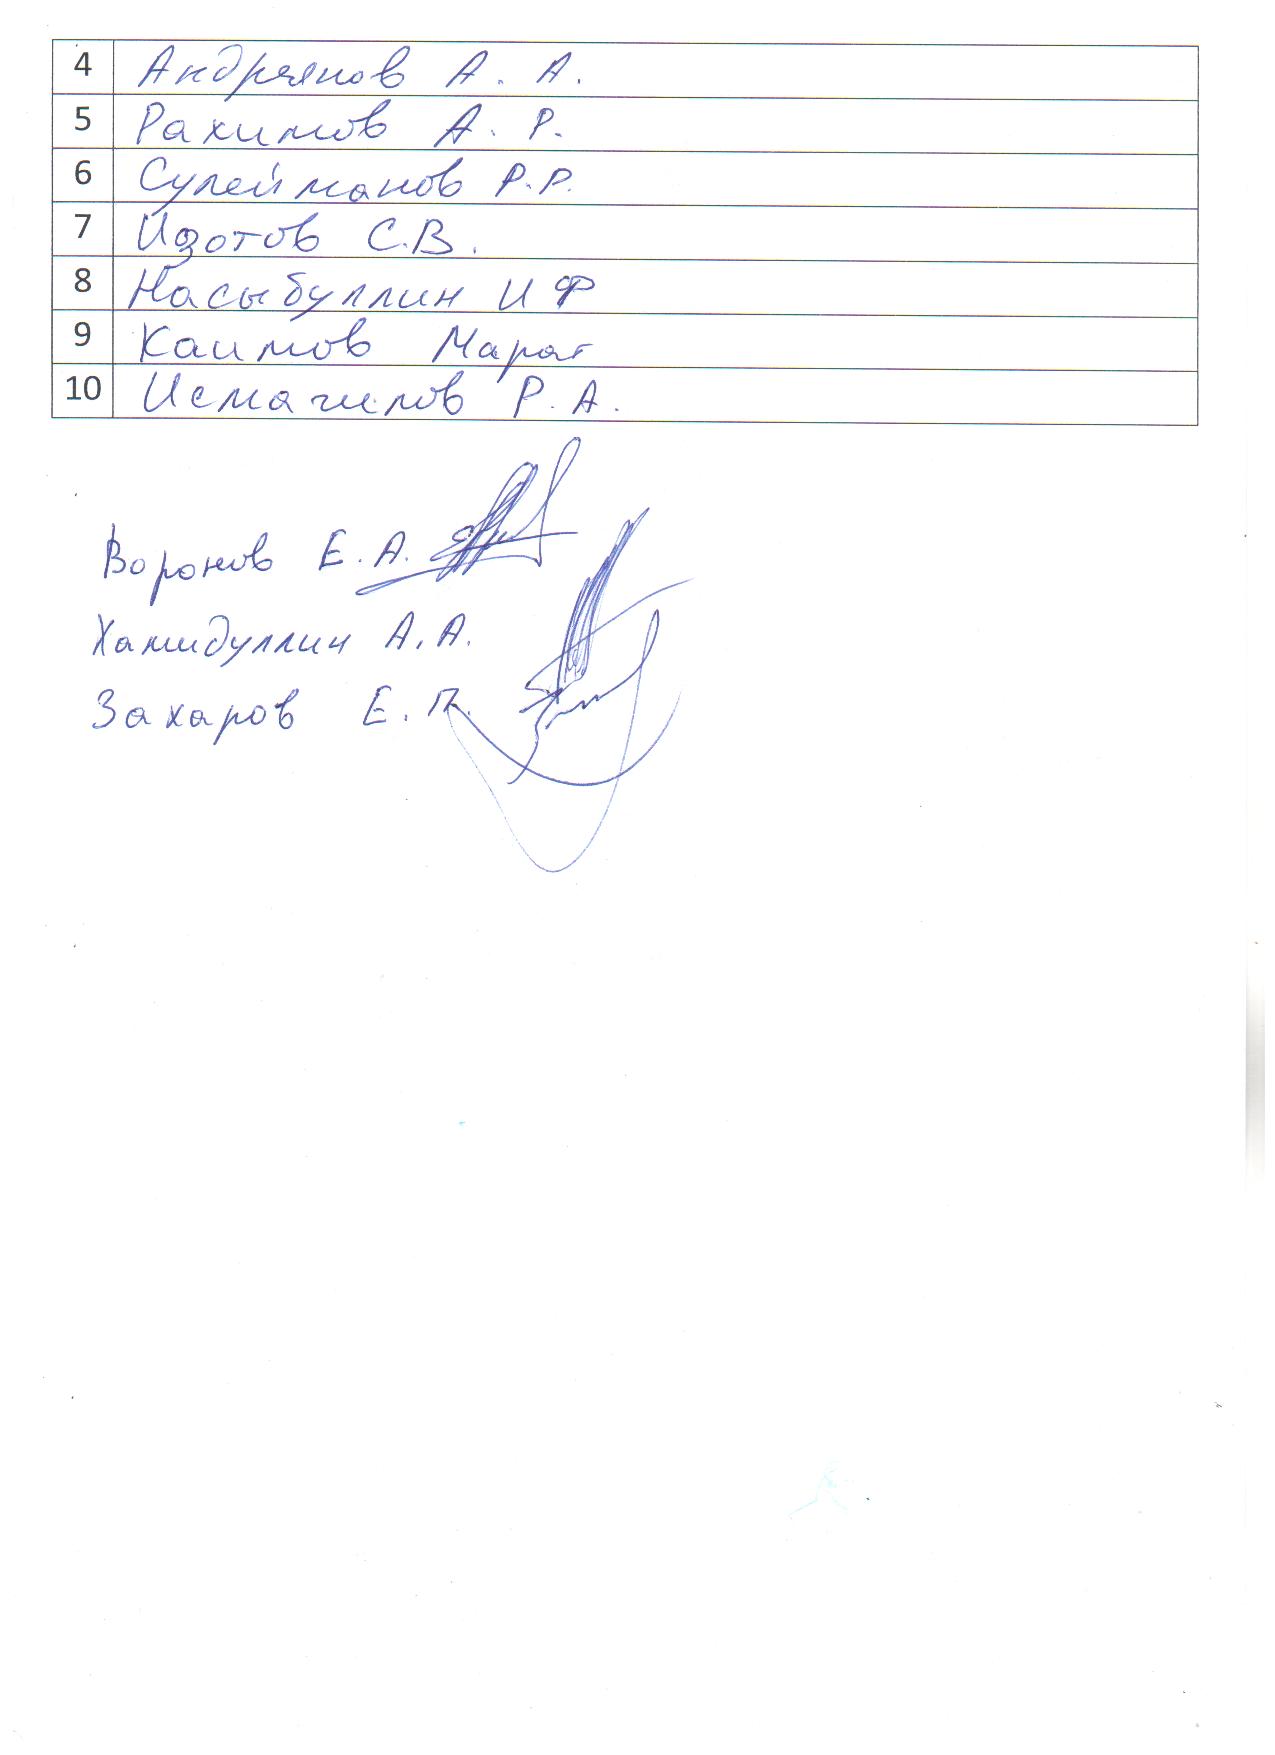 4 Андреянов А. А.
5 Рахимов А. Р.
6 Сулейманов Р.Р.
7 Изотов С.В.
8 Насыбуллин И Ф
9 Каимов Марат
10 Исмагилов Р. А.
Воронов Е. А.
Хамидуллин А. А.
Захаров Е. П.